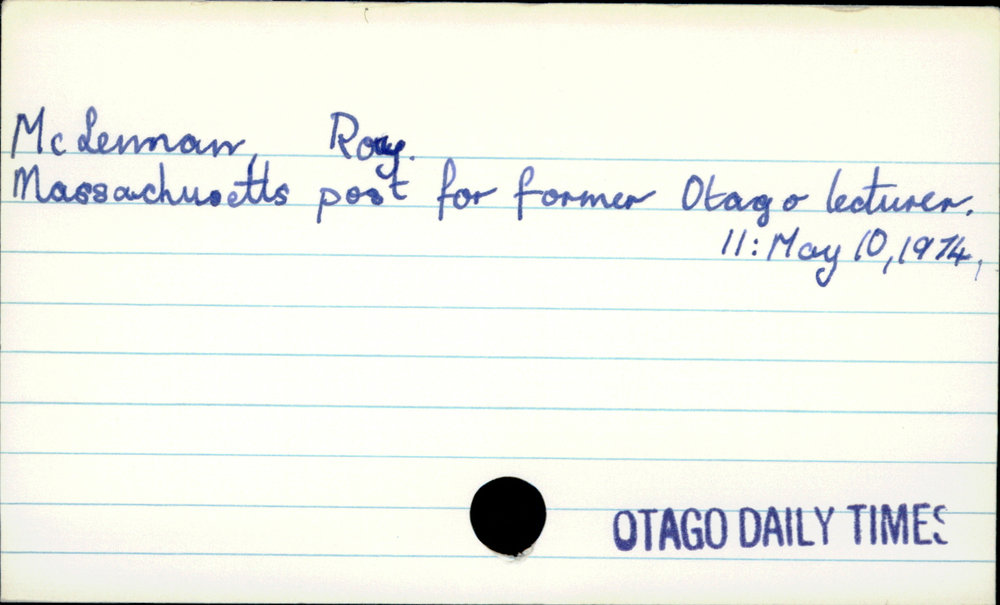 McLennan, Roy.
Massachusetts post for former Otago lecturer.
11: May 10, 1974,
OTAGO DAILY TIMES